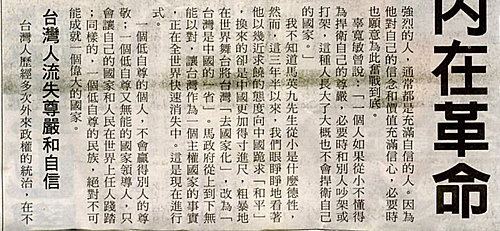 內在革命
強烈的人，通常都是充滿自信的人。因為
他對自己的信念和價值充滿信心，必要時
也願意為此奮戰到底。
辜寬敏曾說：「一個人如果從小不懂得
為捍衛自己的尊嚴，必要時和別人吵架或
打架，這種人長大了大概也不會捍衛自己
的國家。」
我不知道馬英九先生從小是什麼德性，
然而，這三年半以來，我們眼睜睜地看著
他以幾近求饒的態度向中國跪求「和平」
，換來的卻是中國更加得寸進尺，粗暴地
在世界舞台將台灣「去國家化」，改為「
台灣是中國的一省」。馬政府從上到下無
能反對，讓台灣作為一個主權國家的事實
，正在全世界快速消失中。這是現在進行
式。
一個低自尊的個人，不會贏得別人的尊
敬；一個低自尊又無能的國家領導人，只
會讓自己的國家和人民在世界上任人踐踏
；同樣的，一個低自尊的民族，絕對不可
能成就一個偉大的國家。
台灣人流失尊嚴和自信
台灣人歷經多次外來政權的統治，在不